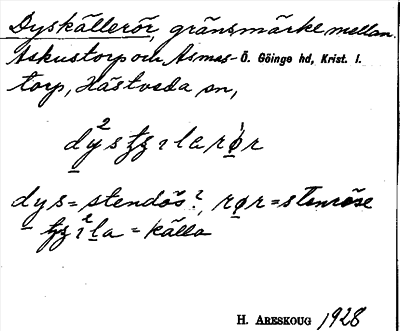 Dyskälleröŕ, gränsmärke mellan
Askustorp om Asmas- Ö. Göinge hd, Krist. l.
torp, Hästveda sn,
dys = stendös?, rør = stenröse
= källa
H. ARESKOUG 1928